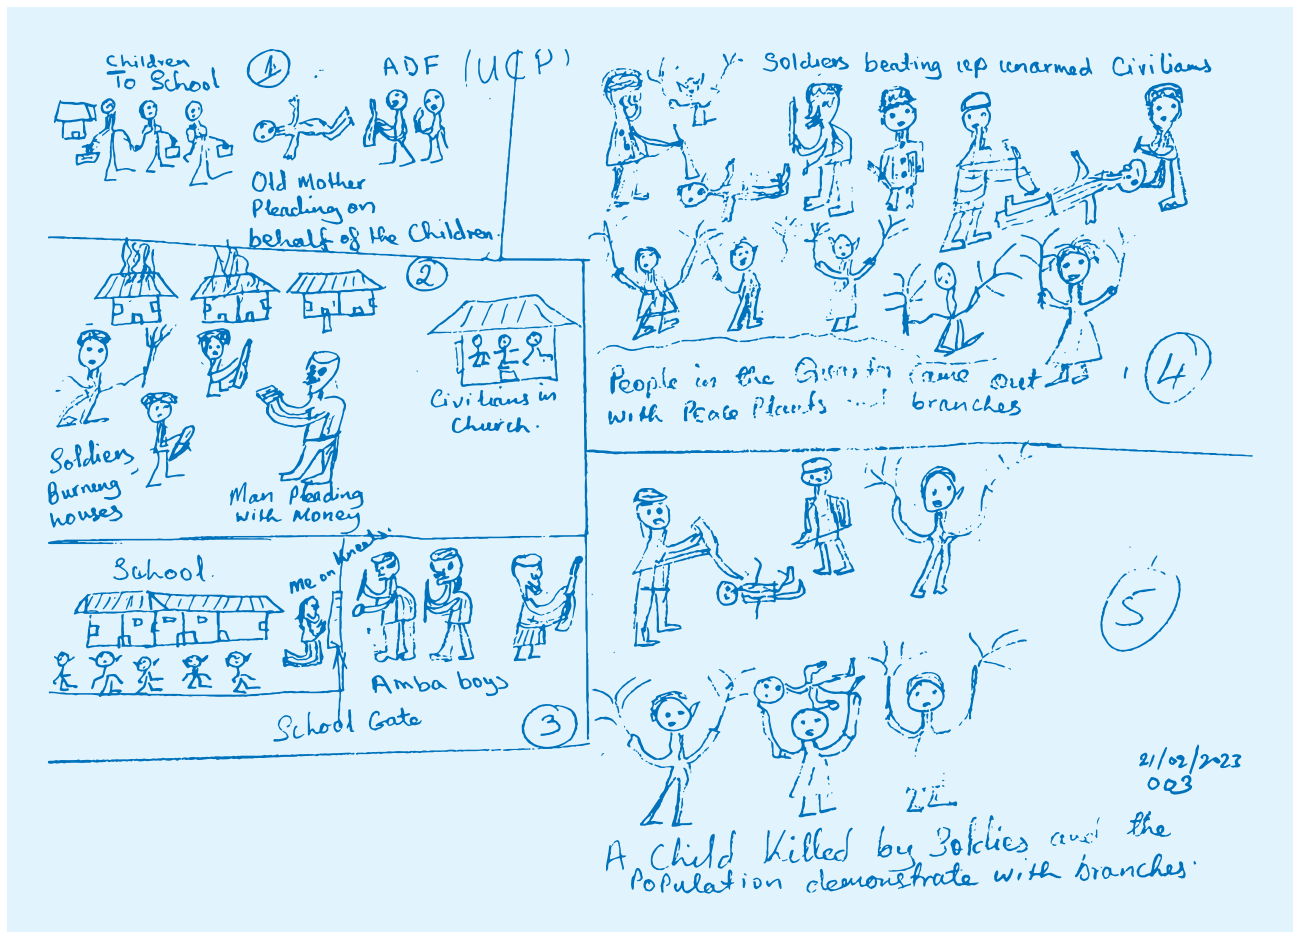 Children
To School
1
ADF (UCP)
Old Mother
Pleading on
behalf of the Children.
2
Civilians in
Church.
Soldiers
Burning
houses
Man Pleading
with Money
School.
me on Kneels.
Amba boys
School Gate
3
Soldiers beating up unarmed Civilians
People in the came out
with Peace Plants and branches
4
5
21/02/2023
003
A Child Killed by Soldies and the
Population demonstrate with branches.